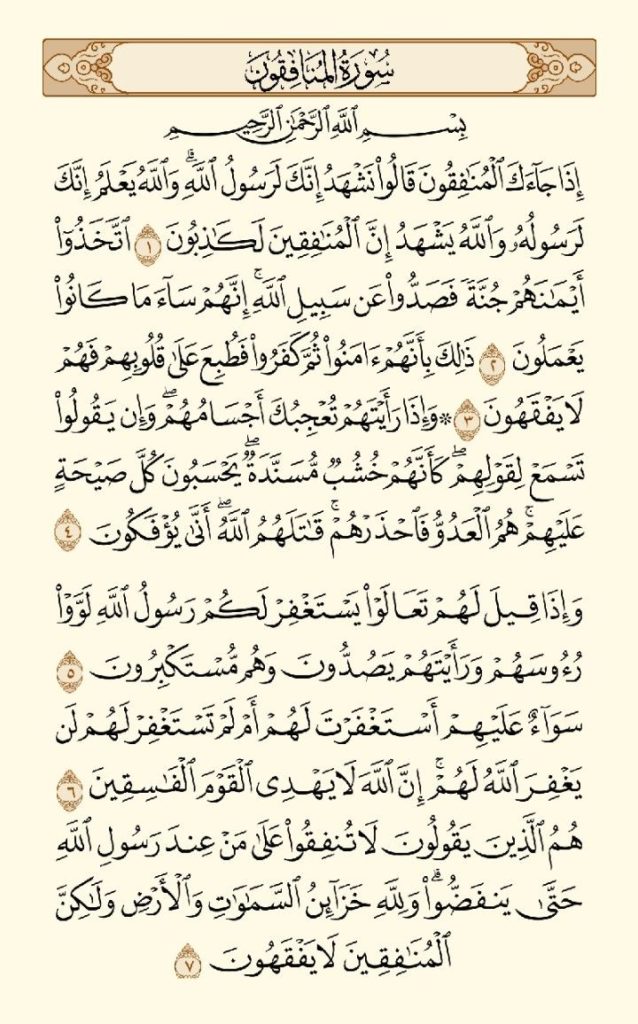 سُورَةُ المُنَافِقُونَ
بِسۡمِ ٱللَّهِ ٱلرَّحۡمَٰنِ ٱلرَّحِيمِ
إِذَا جَآءَكَ ٱلۡمُنَٰفِقُونَ قَالُواْ نَشۡهَدُ إِنَّكَ لَرَسُولُ ٱللَّهِۗ وَٱللَّهُ يَعۡلَمُ إِنَّكَ
لَرَسُولُهُۥ وَٱللَّهُ يَشۡهَدُ إِنَّ ٱلۡمُنَٰفِقِينَ لَكَٰذِبُونَ ١ ٱتَّخَذُوٓاْ
أَيۡمَٰنَهُمۡ جُنَّةٗ فَصَدُّواْ عَن سَبِيلِ ٱللَّهِۚ إِنَّهُمۡ سَآءَ مَا كَانُواْ
يَعۡمَلُونَ ٢ ذَٰلِكَ بِأَنَّهُمۡ ءَامَنُواْ ثُمَّ كَفَرُواْ فَطُبِعَ عَلَىٰ قُلُوبِهِمۡ فَهُمۡ
لَا يَفۡقَهُونَ ٣ ۞ وَإِذَا رَأَيۡتَهُمۡ تُعۡجِبُكَ أَجۡسَامُهُمۡۖ وَإِن يَقُولُواْ
تَسۡمَعۡ لِقَوۡلِهِمۡۖ كَأَنَّهُمۡ خُشُبٞ مُّسَنَّدَةٞۖ يَحۡسَبُونَ كُلَّ صَيۡحَةٍ
عَلَيۡهِمۡۚ هُمُ ٱلۡعَدُوُّ فَٱحۡذَرۡهُمۡۚ قَٰتَلَهُمُ ٱللَّهُۖ أَنَّىٰ يُؤۡفَكُونَ ٤
وَإِذَا قِيلَ لَهُمۡ تَعَالَوۡاْ يَسۡتَغۡفِرۡ لَكُمۡ رَسُولُ ٱللَّهِ لَوَّوۡاْ
رُءُوسَهُمۡ وَرَأَيۡتَهُمۡ يَصُدُّونَ وَهُم مُّسۡتَكۡبِرُونَ ٥
سَوَآءٌ عَلَيۡهِمۡ أَسۡتَغۡفَرۡتَ لَهُمۡ أَمۡ لَمۡ تَسۡتَغۡفِرۡ لَهُمۡ لَن
يَغۡفِرَ ٱللَّهُ لَهُمۡۚ إِنَّ ٱللَّهَ لَا يَهۡدِي ٱلۡقَوۡمَ ٱلۡفَٰسِقِينَ ٦
هُمُ ٱلَّذِينَ يَقُولُونَ لَا تُنفِقُواْ عَلَىٰ مَنۡ عِندَ رَسُولِ ٱللَّهِ
حَتَّىٰ يَنفَضُّواْۗ وَلِلَّهِ خَزَآئِنُ ٱلسَّمَٰوَٰتِ وَٱلۡأَرۡضِ وَلَٰكِنَّ
ٱلۡمُنَٰفِقِينَ لَا يَفۡقَهُونَ ٧